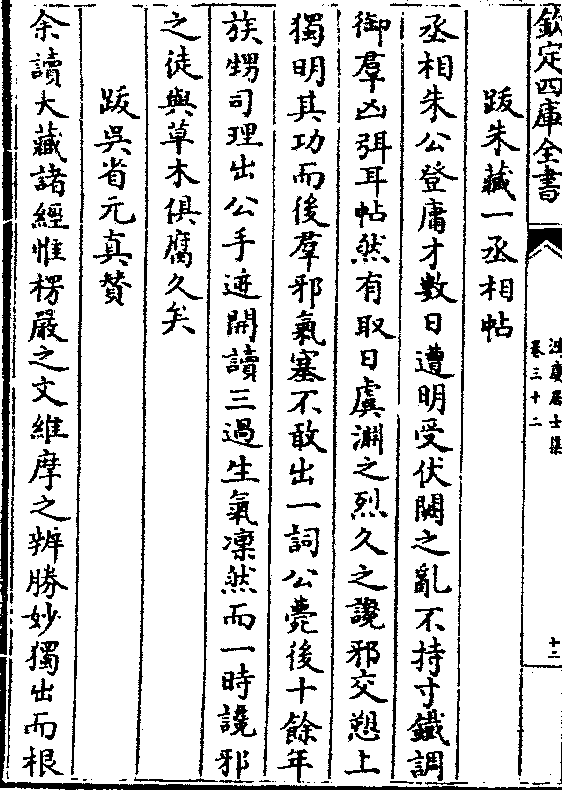 欽定四庫全書
鴻慶居士集
卷三十二
十二
跋朱藏一丞相帖
丞相朱公登庸才數日遭明受伏闕之亂不持寸鐵調
御羣凶弭耳帖然有取日虞淵之烈久之讒邪交愬上
獨明其功而後羣邪氣塞不敢出一詞公薨後十餘年
族甥司理出公手迹開讀三過生氣凜然而一時讒邪
之徒與草木俱腐久矣
跋吳省元真贊
余讀大藏諸經惟楞嚴之文維摩之辨勝妙獨出而根